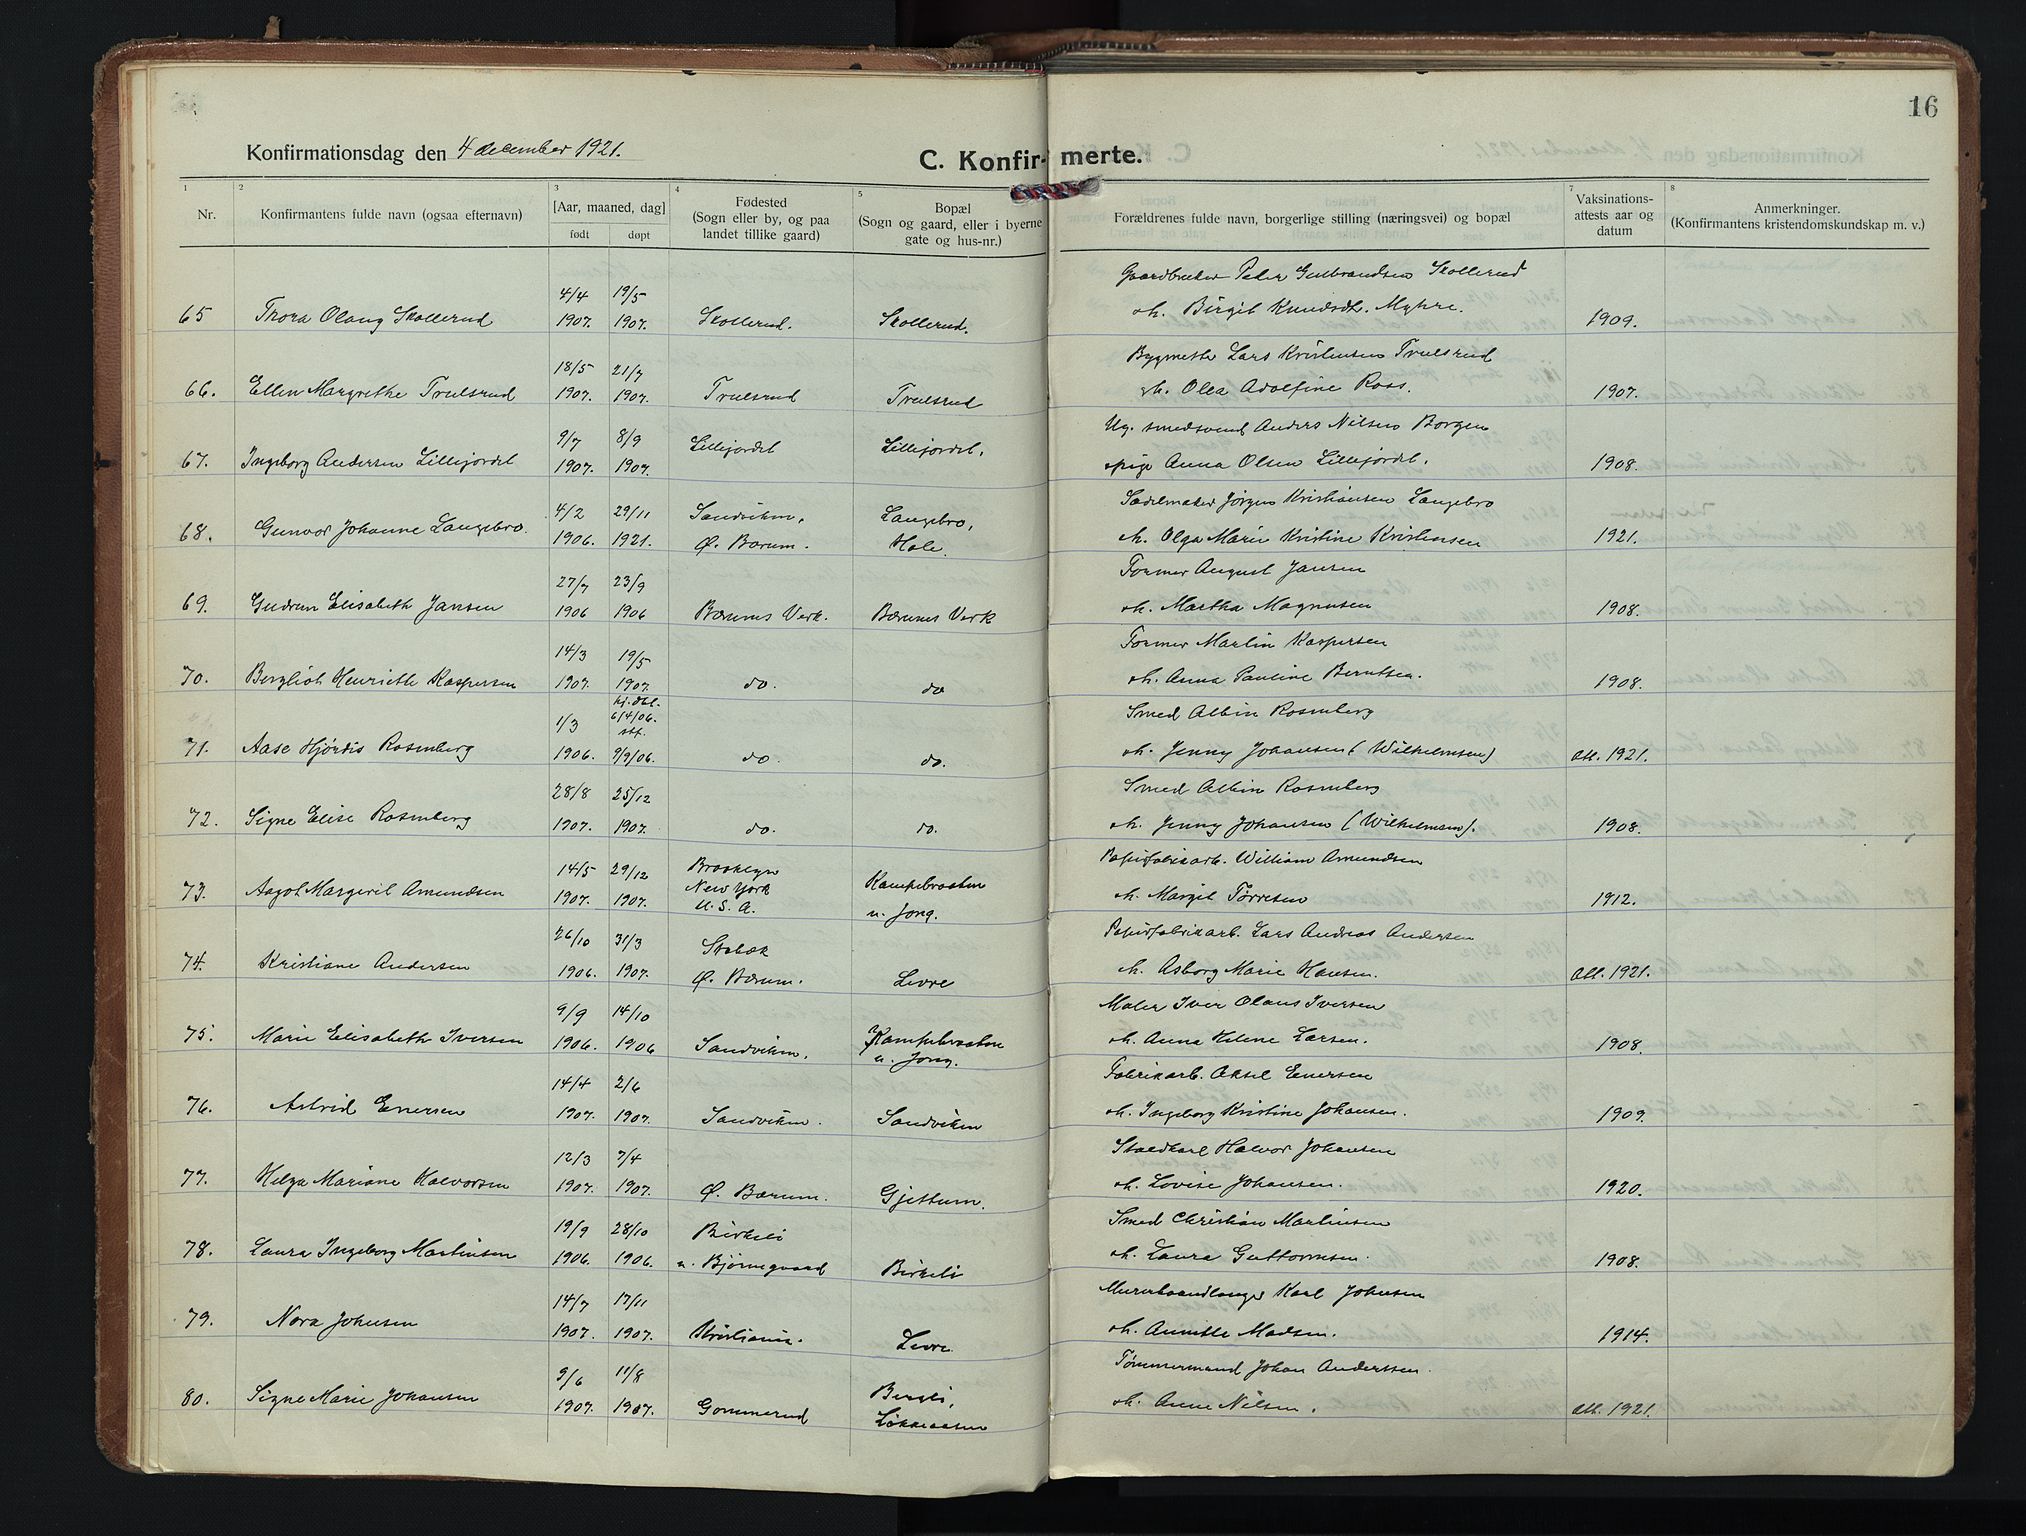 16
Konfirmationsdag den 4 december 1921.
C. Konfir- merte.
1 2 3 4 5 7 8
Nr.
Konfirmantens fulde navn (ogsaa efternavn)
[Aar, maaned, dag]
født døpt
Fødested
(Sogn eller by, og paa
landet tillike gaard)
Bopæl
(Sogn og gaard, eller i byerne
gate og hus-nr.)
Forældrenes fulde navn, borgerlige stilling (næringsvei) og bopæl
Vaksinations-
attests aar og
datum
Anmerkninger.
(Konfirmantens kristendomskundskap m. v.)
4/4 19/5 Gaardbruker Peder Gulbrandsen Skollerud
65 Thora Olaug Skollerud 1907. 1907. Skollerud. Skollerud. o.h. Birgit Knudsdt. Myhre. 1909.
18/5 21/7 Bygmester Lars Kristensen Trulsrud
66. Ellen Margrethe Trulsrud 1907. 1907. Trulsrud Trulsrud o.h. Olea Adolfine Roos. 1907.
9/7 8/9 Ug. smedsvend Anders Nilsen Borgen
67. Ingeborg Andersen Lillejordet 1907. 1907. Lillejordet Lillejordet. o pige Anna Olsen Lillejordet. 1908.
4/2 29/11 Sandviken, Langebro, Sadelmaker Jørgen Kristiansen Langebro
68. Gunvor Johanne Langebro. 1906. 1921. Ø. Bærum. Hole. o.h. Olga Marie Kristine Kristensen 1921.
27/7 23/9 Former August Jansen
69. Gudrun Elisabeth Jansen 1906 1906 Bærums Verk. Bærums Verk o.h. Martha Magnusen 1908.
14/3 19/5 Former Martin Kaspersen
70. Bergliot Henriette Kaspersen 1907. 1907. do. do o.h. Anna Pauline Berntsen. 1908.
hj. dbt.
1/3 6/4/06. Smed Albin Rosenberg
stf.
71. Aase Hjørdis Rosenberg 1906. 9/9/06. do. do. o.h. Jenny Johansen (Wilhelmsen) Att. 1921.
28/8 25/12 Smed Albin Rosenberg
72. Signe Elise Rosenberg 1907. 1907. do. do. o.h. Jenny Johansen (Wilhelmsen). 1908.
14/5 29/12 Brooklyn Papirfabrikarb. William Amundsen
New York Kampebraaten
73. Aagot Margerit Amundsen 1907. 1907. U. S. A. u. Jong. o.h. Margit Tørresen 1912.
26/10 31/3 Stabæk Papirfabrikarb. Lars Andreas Andersen
74. Kristiane Andersen 1906. 1907. Ø. Bærum. Levre o.h. Asborg Marie Hansen. Att. 1921.
9/9 14/10 Maler Iver Olaus Iversen
75. Marie Elisabeth Iversen 1906. 1906 Sandviken. Kampebraaten o.h. Anna Helene Larsen. 1908.
u. Jong.
14/4 2/6 Fabrikarb. Aksel Enersen
76. Astrid Enersen 1907. 1907. Sandviken. Sandviken o.h. Ingeborg Kristine Johansen. 1909.
12/3 7/4 Staldkarl Halvor Johansen
77. Helga Mariane Halvorsen 1907. 1907. Ø. Bærum. Gjettum. o.h. Lovise Johansen. 1920.
19/9 28/10 Birkeli Smed Christian Martinsen
78. Laura Ingeborg Martinsen 1906. 1906. u. Bjørnegaard Birkeli o.h. Laura Guttormsen. 1908.
14/7 17/11 Murerhaandlanger Karl Johnsen
79. Nora Johnsen 1907. 1907. Kristiania. Levre. o.h. Annette Madsen. 1914.
9/6 11/8 Bergli, Tømmermand Johan Anderssen.
80. Signe Marie Johansen 1907. 1907. Gommerud Løkkeaasen o.h. Anne Nilsen. Att. 1921.